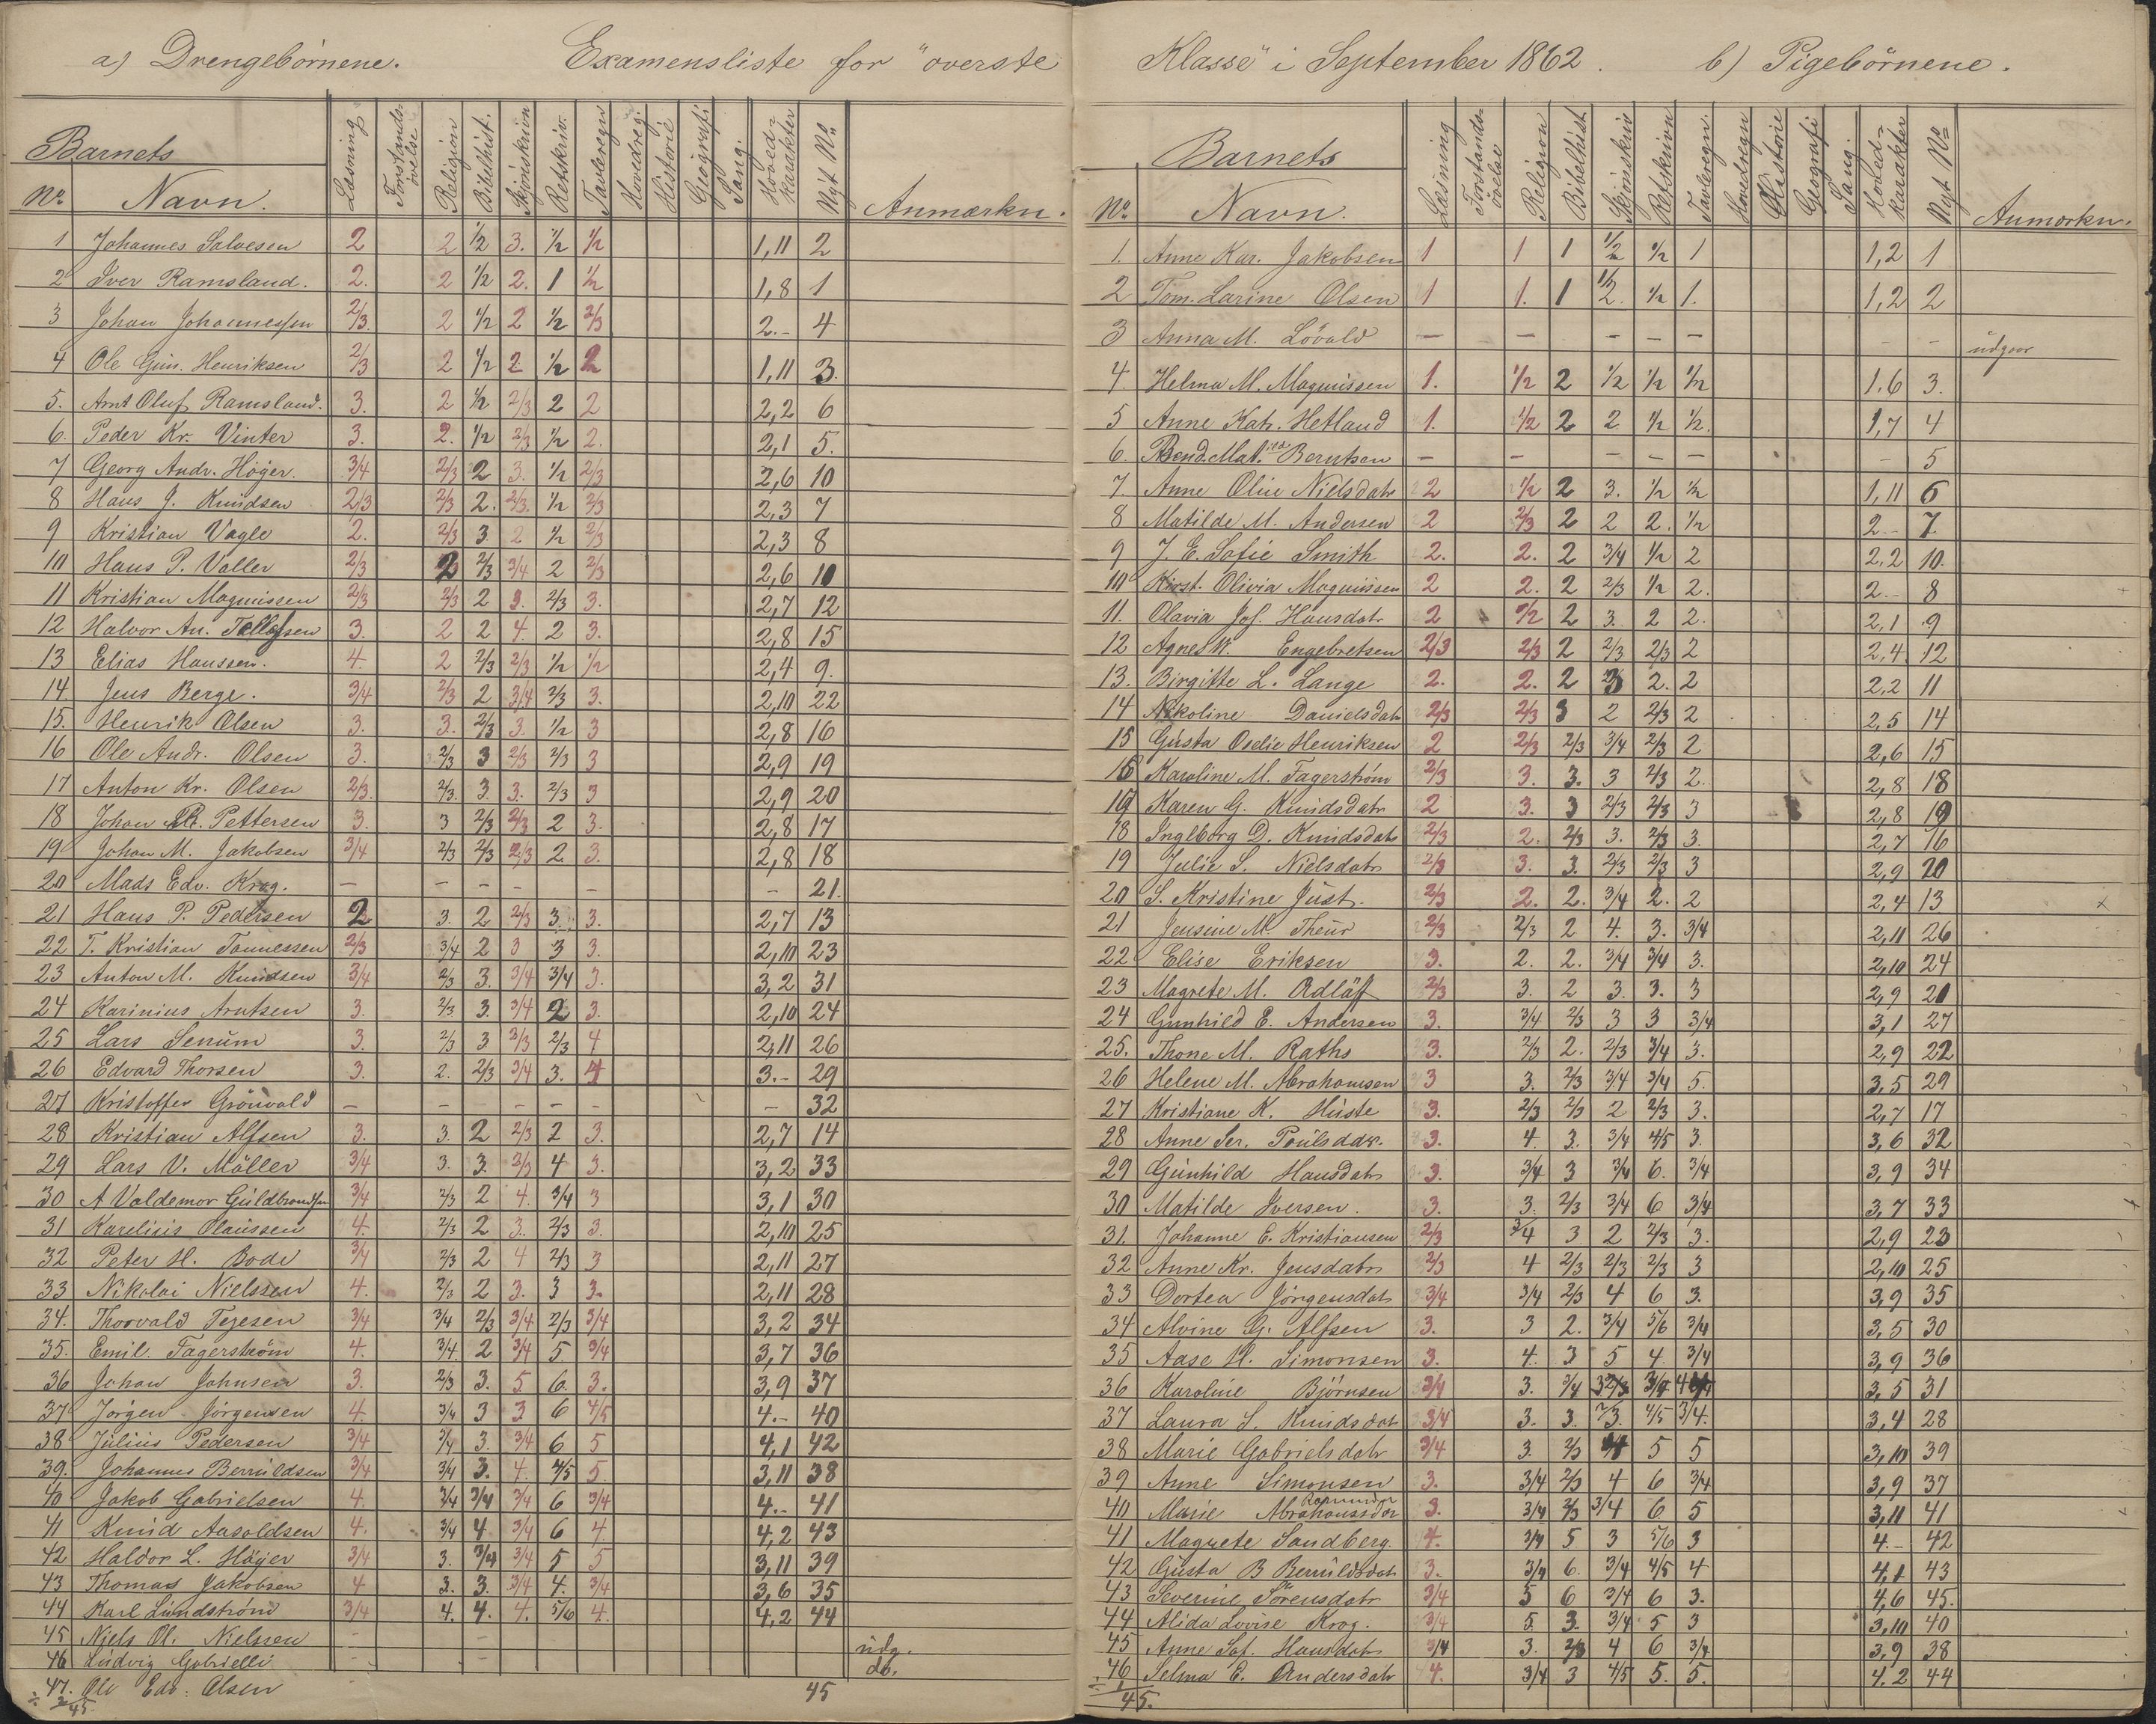 a) Drengebörnene. Examensliste for "överste
Barnets
No. Navn. Læsning Forstands-övelse Religion Bibelhist. Skjönskrivn Retskriv. Tavleregn Hovedreg. Historie Geografi Sang. Hoved-karakter Nyt No. Anmærkn.
1 Johannes Salvesen 2 2 1/2 3. 1/2 1/2 1,11 2
2 Iver Ramsland. 2. 2 1/2 2. 1 1/2 1,8 1
3 Johan Johannessen 2/3. 2 1/2 2 1/2 2/3 2.- 4
4 Ole Gun. Henriksen 2/3 2 1/2 2 1/2 2 1,11 3.
5. Arnt Oluf Ramsland. 3. 2 1/2 2/3 2 2 2,2 6
6. Peder Kr. Vinter 3. 2. 1/2 2/3 1/2 2. 2,1 5.
7 Georg Andr. Höyer. 3/4 2/3 2 3. 1/2 2/3 2,6 10
8 Hans J. Knudsen 2/3 2/3 2. 2/3. 1/2 2/3 2,3 7
9 Kristian Vagle 2. 2/3 3 2 1/2 2/3 2,3 8
10 Hans P. Valler 2/3 2 2/3 3/4 2 2/3 2,6 10
11 Kristian Magnussen 2/3 2/3 2 3. 2/3 3. 2,7 12
12 Halvor An. Tellefsen 3. 2 2 4. 2 3. 2,8 15
13 Elias Hanssen. 4. 2 2/3 2/3 1/2 1/2 2,4 9.
14. Jens Berge. 3/4 2/3 2 3/4 2/3 3. 2,10 22
15. Henrik Olsen 3. 3. 2/3 3. 1/2 3 2,8 16
16 Ole Andr. Olsen 3. 2/3 3 2/3 2/3 3 2,9 19
17 Anton Kr. Olsen 2/3. 2/3. 3. 3. 2/3 3 2,9 20
18 Johan Pettersen 3. 3 2/3 2/3 2 3. 2,8 17
19 Johan M. Jakobsen 3/4 2/3 2/3 2/3 2. 3. 2,8 18
20 Mads Edv. Krog. - - - - - - 21.
21 Hans P. Pedersen 2 3. 2 2/3 3. 3. 2,7 13
22 T. Kristian Tønnessen 2/3 3/4 2 3 3 3. 2,10 23
23 Anton M. Knudsen 3/4 2/3 3. 3/4 3/4 3. 3,2 31
24 Karinius Arntsen 3. 2/3. 3. 3/4 2 3. 2,10 24
25 Lars Senum 3. 2/3 3 3/3 2/3 4 2,11 26
26 Edvard Thorsen 3. 2. 2/3 3/4 3. 4 3.- 29
27 Kristoffer Grönvold - - - - - - - 32
28 Kristian Alfsen 3. 3. 2 2/3 2 3. 2,7 14
29 Lars V. Möller 3/4 3. 3. 2/3 4 3. 3,2 33
30 A Valdemar Guldbrandsen 3/4 2/3 2 4. 3/4 3 3,1 30
31 Karelius Olaussen 4. 2/3 2 3. 2/3 3. 2,10 25
32 Peter H. Bode 3/4 2/3 2 4 2/3 3 2,11 27
33 Nikolai Nielssen 4. 2/3 2 3. 3 3. 2,11 28
34. Thorvald Tejesen 3/4 3/4 2/3 3/4 2/3 3/4 3,2 34
35. Emil. Fagerström 4. 3/4. 2 3/4 5 3/4 3,7 36
36 Johan Johnsen 3. 2/3 3. 5. 6. 3. 3,9 37
37 Jörgen Jörgensen 4. 3/4 3 3 6 4/5 4.- 40
38 Julius Pedersen 3/4 3/4 3. 3/4 6 5 4,1 42
39. Johannes Berruldsen 3/4 3/4 3. 4. 4/5 5. 3,11 38
40 Jakob Gabrielsen 4. 3/4 3/4 3/4 6 3/4 4.- 41
41 Knud Aasoldsen 4. 3/4 4 3/4 6 4 4,2 43
42 Haldor L. Höyer 3/4 3. 3/4 3/4 5 5 3,11 39
43 Thomas Jakobsen 4 3. 3. 3/4 4. 3/4 3,6 35
44 Karl Lundström 3/4 4. 4. 4. 5/6 4. 4,2 44
45 Niels Ol. Nielssen - - udg.
46 Ludvig Gabrielli - - do.
47. Ole Edv. Olsen 45
÷ 2
45.
Klasse" i September 1862. b) Pigebörnene.
Barnets
No. Navn. Læsning Forstands-övelse Religion Bibelhist Skjönskriv Retskrivn Tavleregn. Hovedregn Historie Geografi Sang. Hoved-karakter Nyt No Anmærkn.
1. Anne Kar. Jakobsen 1 1 1 1/2 1/2 1 1,2 1
2 Tom. Larine Olsen 1 1. 1 1/2. 1/2 1. 1,2 2
3 Anna M. Lövald - - - - - - - udgaar
4. Helma M. Magnussen 1. 1/2 2 1/2 1/2 1/2 1,6 3.
5 Anne Kat. Hetland 1. 1/2 2 2 1/2 1/2. 1,7 4
6 Bend. Mat. Berntsen - - - - - - 5
7. Anne Oline Nielsdatr 2 1/2 2 3. 1/2 1/2 1,11 6
8 Matilde M. Andersen 2 2/3 2 2 2. 1/2 2- 7.
9 J. E. Sofie Smith 2. 2. 2 3/4 1/2 2 2,2 10.
10 Kirst. Olivia Magnussen 2 2. 2 2/3 1/2 2. 2.- 8
11. Olavia Jos. Hansdatr 2 1/2 2 3. 2 2. 2,1 9
12 Agnes W. Engebretsen 2/3 2/3 2 2/3 2/3 2 2,4. 12
13. Birgitte L. Lange 2. 2. 2 3 2. 2 2,2 11
14 Nikoline Danielsdatr 2/3 2/3 3 2 2/3 2 2,5 14
15 Gusta Oselie Henriksen 2 2/3 2/3 3/4 2/3 2 2,6 15
16 Karoline M. Fagerström 2/3 3. 3. 3 2/3 2. 2,8 18
17 Karen G. Knudsdatr 2 3. 3 2/3 2/3 3 2,8 19
18 Ingeborg D. Knudsdatr 2/3 2. 2/3 3. 2/3 3. 2,7 16
19 Julie S. Nielsdatr 2/3 3. 3. 2/3 2/3 3 2,9 20
20 S. Kristine Just. 2/3 2. 2. 3/4 2. 2 2,4 13 x
21 Jensine M. Theur 2/3 2/3 2 4. 3. 3/4 2,11 26
22 Elise Eriksen 3. 2. 2. 3/4 3/4 3. 2,10 24
23 Magrete M. 2/3 3. 2 3. 3. 3 2,9 21
24 Gunhild E. Andersen 3. 3/4 2/3 3 3 3/4 3,1 27
25. Thone M. Raths 3. 2/3 2. 2/3 3/4 3. 2,9 22
26 Helene M. Abrahamsen 3 3. 2/3 3/4 3/4 5. 3,5 29
27 Kristiane K. Huste 3. 2/3 2/3 2 2/3 3. 2,7 17
28 Anne Ser. Poulsdatr. 3. 4. 3. 3/4 4/5 3. 3,6 32
29 Gunhild Hansdatr 3. 3/4 3 3/4 6. 3/4 3,9 34
30 Matilde Iversen. 3. 3. 2/3 3/4 6 3/4 3,7 33
31. Johanne E. Kristiansen 2/3 3/4 3 2 2/3 3. 2,9 23
32 Anne Kr. Jensdatr 2/3 4 2/3 2/3 2/3 3 2,10 25
33 Dortea Jörgensdatr 3/4 3/4 2/3 4 6 3. 3,9 35
34 Alvine G. Alfsen 3. 3 2. 3/4 5/6 3/4 3,5 30
35 Aase H. Simonsen 3. 4. 3 5 4. 3/4 3,9 36
36 Karoline Björnsen 3/4 3. 3/4 3,5 31
37 Laura S. Knudsdatr 3/4 3. 3. 2/3. 4/5 3/4. 3,4 28
38 Marie Gabrielsdatr 3/4 3. 2/3 5 5 3,10 39
39 Anne Simonsen 3. 3/4 2/3 4 6 3/4 3,9 37
40 Marie Abrahamsdatr 3. 3/4 2/3 3/4 6. 5 3,11 41
41 Magrete Sandberg. 4. 3/4 5 3 5/6 3 4.- 42
42 Gusta B Berruldsdatr 3. 3/4 6. 3/4 4/5 4 4,1 43
43 Severine Sörensdatr 3/4 5 6 3/4 6 3. 4,6 45.
44 Alida Lovise Krog. 3/4 5. 3. 3/4 5 3 3,10 40
45 Anne Sof. Hansdatr 3/4 3. 2/3 4 6 3/4 3,9 38
46 Selma E. Andersdatr 4. 3/4 3 4/5 5. 5. 4,2 44
÷ 1
45.